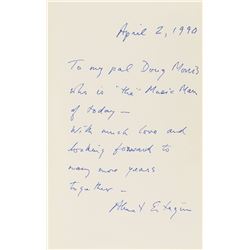 April 2, 1990
To my pal Doug Morris
who is "the" Music Man
of today —
With much love and
looking forward to
many more years
together —
Ahmet Ertegun